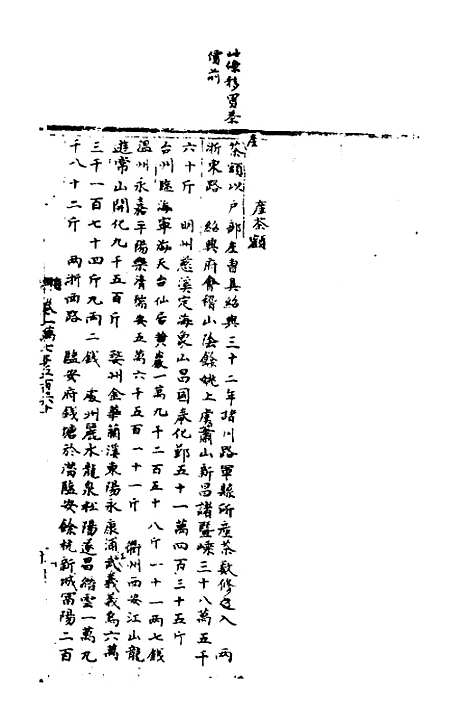 此條移買茶
價前
產茶額
產
茶額以戶部左曹具紹興三十二年諸川路軍縣所產茶數修入 兩
浙東路 紹興府會稽山陰餘姚上虞蕭山新昌諸暨嵊三十八萬五千
六十斤 明州慈溪定海象山昌國奉化鄞五十一萬四百三十五斤
台州臨海寧海天台仙居黃巖一萬九千二百五十八斤一十一兩七錢
溫州永嘉平陽樂清瑞安五萬六千五百一十一斤 衢州西安江山龍
遊常山開化九千五百斤 婺州金華蘭溪東陽永康浦江武義義烏六萬
三千一百七十四斤九兩二錢 處州麗水龍泉松陽遂昌縉雲一萬九
千八十二斤 兩浙西路 臨安府錢塘於潛臨安餘杭新城富陽二百
卷一萬七千五百六十